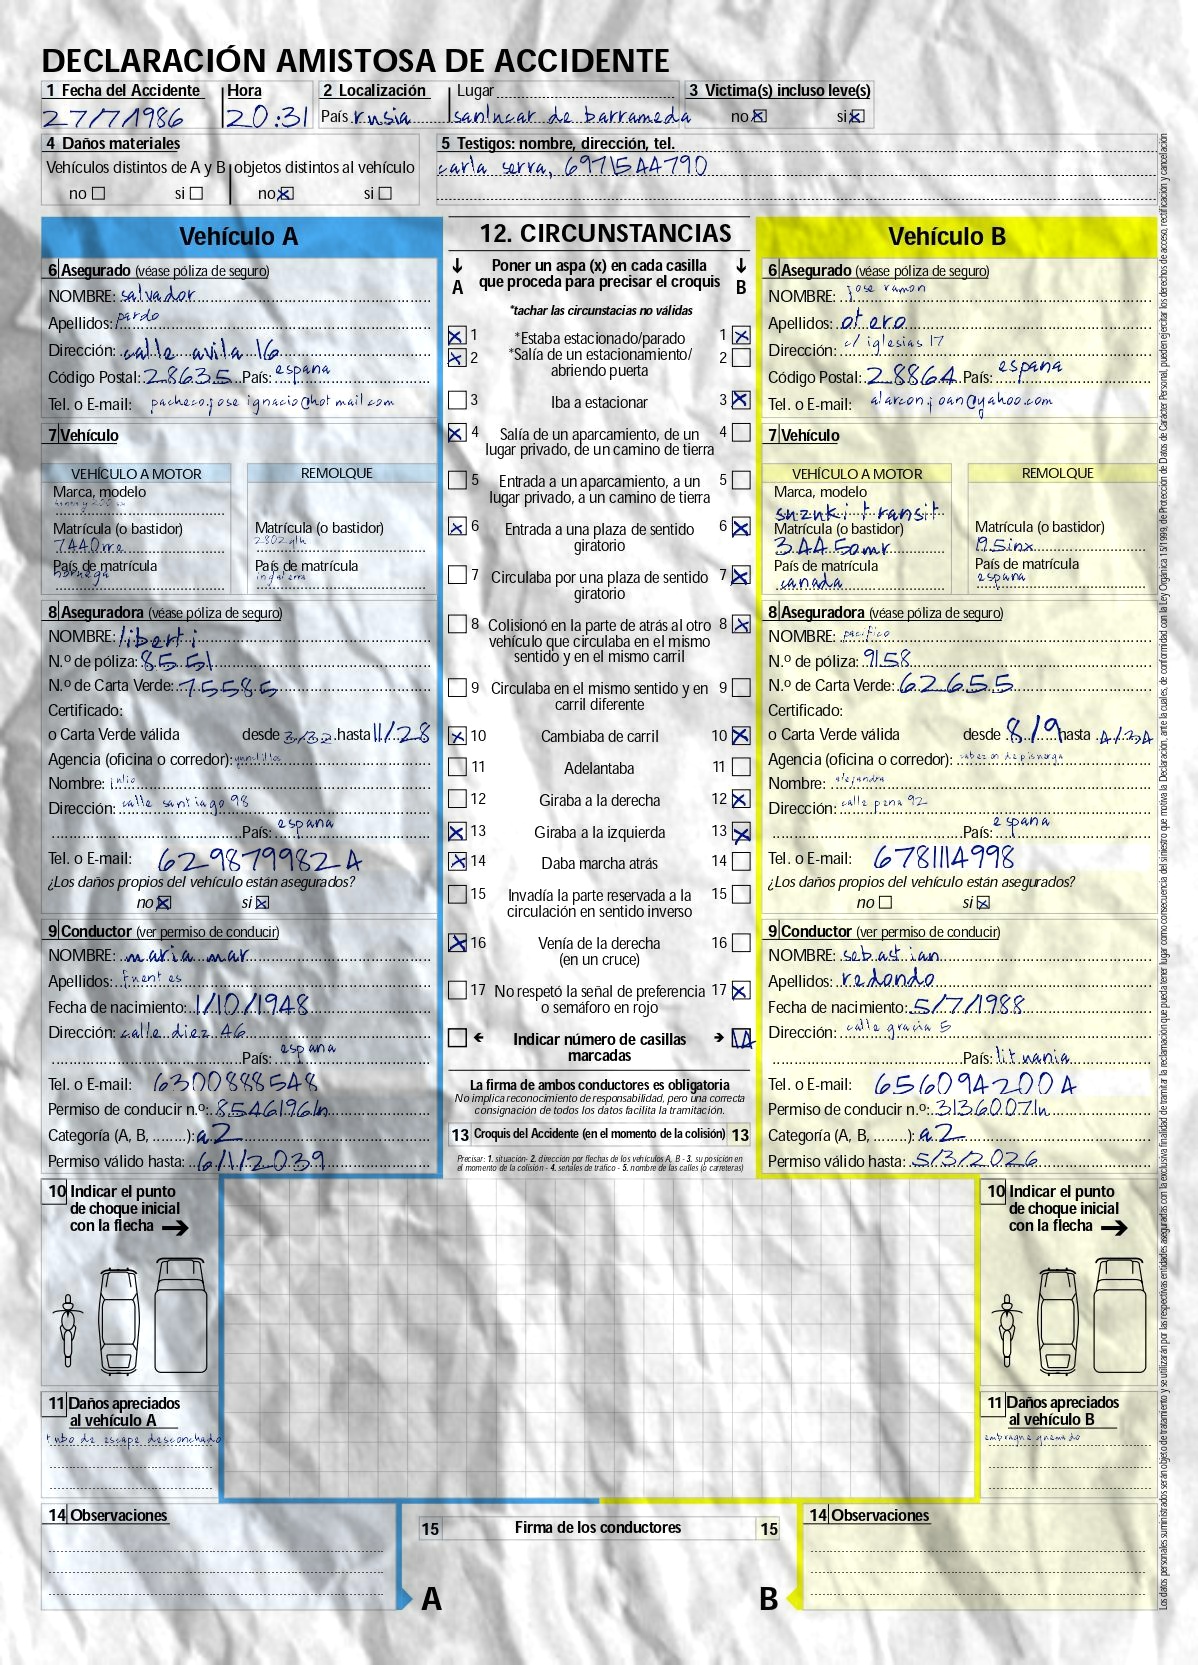 DECLARACIÓN AMISTOSA DE ACCIDENTE
1 Fecha del Accidente Hora 2 Localización Lugar 3 Victima(s) incluso leve(s)
27/7/1986 20:31 País rusia sanlucar de barrameda no si
4 Daños materiales 5 Testigos: nombre, dirección, tel.
Vehículos distintos de A y B objetos distintos al vehículo carla serra, 6971544790
no si no si
Vehículo A
6 Asegurado (véase póliza de seguro)
NOMBRE: salvador
Apellidos: pardo
Dirección: calle avila 16
Código Postal: 28635 País: espana
Tel. o E-mail: pacheco.jose ignacio@hotmail.com
7 Vehículo
VEHÍCULO A MOTOR REMOLQUE
Marca, modelo
Matrícula (o bastidor) Matrícula (o bastidor)
7440rre 2802glh
País de matrícula País de matrícula
noruega inglaterra
8 Aseguradora (véase póliza de seguro)
NOMBRE: liberti
N.º de póliza: 8551
N.º de Carta Verde: 75585
Certificado:
o Carta Verde válida desde 3/32 hasta 11/28
Agencia (oficina o corredor):
Nombre: julio
Dirección: calle santiago 98
País: espana
Tel. o E-mail: 629879982 4
¿Los daños propios del vehículo están asegurados?
no si
9 Conductor (ver permiso de conducir)
NOMBRE: maria mar
Apellidos: fuentes
Fecha de nacimiento: 1/10/1948
Dirección: calle diez 46
País: espana
Tel. o E-mail: 6300888548
Permiso de conducir n.º: 8546196ln
Categoría (A, B, ........): a2
Permiso válido hasta: 6/1/2039
12. CIRCUNSTANCIAS
A Poner un aspa (x) en cada casilla B
que proceda para precisar el croquis
*tachar las circunstacias no válidas
1 *Estaba estacionado/parado 1
2 *Salía de un estacionamiento/ 2
abriendo puerta
3 Iba a estacionar 3
4 Salía de un aparcamiento, de un 4
lugar privado, de un camino de tierra
5 Entrada a un aparcamiento, a un 5
lugar privado, a un camino de tierra
6 Entrada a una plaza de sentido 6
giratorio
7 Circulaba por una plaza de sentido 7
giratorio
8 Colisionó en la parte de atrás al otro 8
vehículo que circulaba en el mismo
sentido y en el mismo carril
9 Circulaba en el mismo sentido y en 9
carril diferente
10 Cambiaba de carril 10
11 Adelantaba 11
12 Giraba a la derecha 12
13 Giraba a la izquierda 13
14 Daba marcha atrás 14
15 Invadía la parte reservada a la 15
circulación en sentido inverso
16 Venía de la derecha 16
(en un cruce)
17 No respetó la señal de preferencia 17
o semáforo en rojo
Indicar número de casillas 14
marcadas
La firma de ambos conductores es obligatoria
No implica reconocimiento de responsabilidad, pero una correcta
consignación de todos los datos facilita la tramitación.
13 Croquis del Accidente (en el momento de la colisión) 13
Precisar: 1. situación- 2. dirección por flechas de los vehículos A, B - 3. su posición en
el momento de la colisión - 4. señales de tráfico - 5. nombre de las calles (o carreteras)
Vehículo B
6 Asegurado (véase póliza de seguro)
NOMBRE: jose ramon
Apellidos: otero
Dirección: c/ iglesias 17
Código Postal: 28864 País: espana
Tel. o E-mail: alarconjoan@yahoo.com
7 Vehículo
VEHÍCULO A MOTOR REMOLQUE
Marca, modelo
suzuki transit
Matrícula (o bastidor) Matrícula (o bastidor)
3445amr 195inx
País de matrícula País de matrícula
canada espana
8 Aseguradora (véase póliza de seguro)
NOMBRE: pacifico
N.º de póliza: 9158
N.º de Carta Verde: 62655
Certificado:
o Carta Verde válida desde 8/9 hasta 4/34
Agencia (oficina o corredor): cabezon de pisuerga
Nombre: alejandra
Dirección: calle pena 92
País: espana
Tel. o E-mail: 6781114998
¿Los daños propios del vehículo están asegurados?
no si
9 Conductor (ver permiso de conducir)
NOMBRE: sebastian
Apellidos: redondo
Fecha de nacimiento: 5/7/1988
Dirección: calle gracia 5
País: lituania
Tel. o E-mail: 656094200 4
Permiso de conducir n.º: 3136007ln
Categoría (A, B, ........): a2
Permiso válido hasta: 5/3/2026
10 Indicar el punto
de choque inicial
con la flecha
11 Daños apreciados
al vehículo A
tubo de escape desconchado
14 Observaciones
10 Indicar el punto
de choque inicial
con la flecha
11 Daños apreciados
al vehículo B
embrague quemado
14 Observaciones
15 Firma de los conductores 15
A B
Los datos personales suministrados serán objeto de tratamiento y se utilizarán por las respectivas entidades aseguradas con la exclusiva finalidad de tramitar la reclamación que pueda tener lugar como consecuencia del siniestro que motiva la Declaración, ante la cuales, de conformidad con la Ley Orgánica 15/1999, de Protección de Datos de Carácter Personal, pueden ejercitar los derechos de acceso, rectificación y cancelación